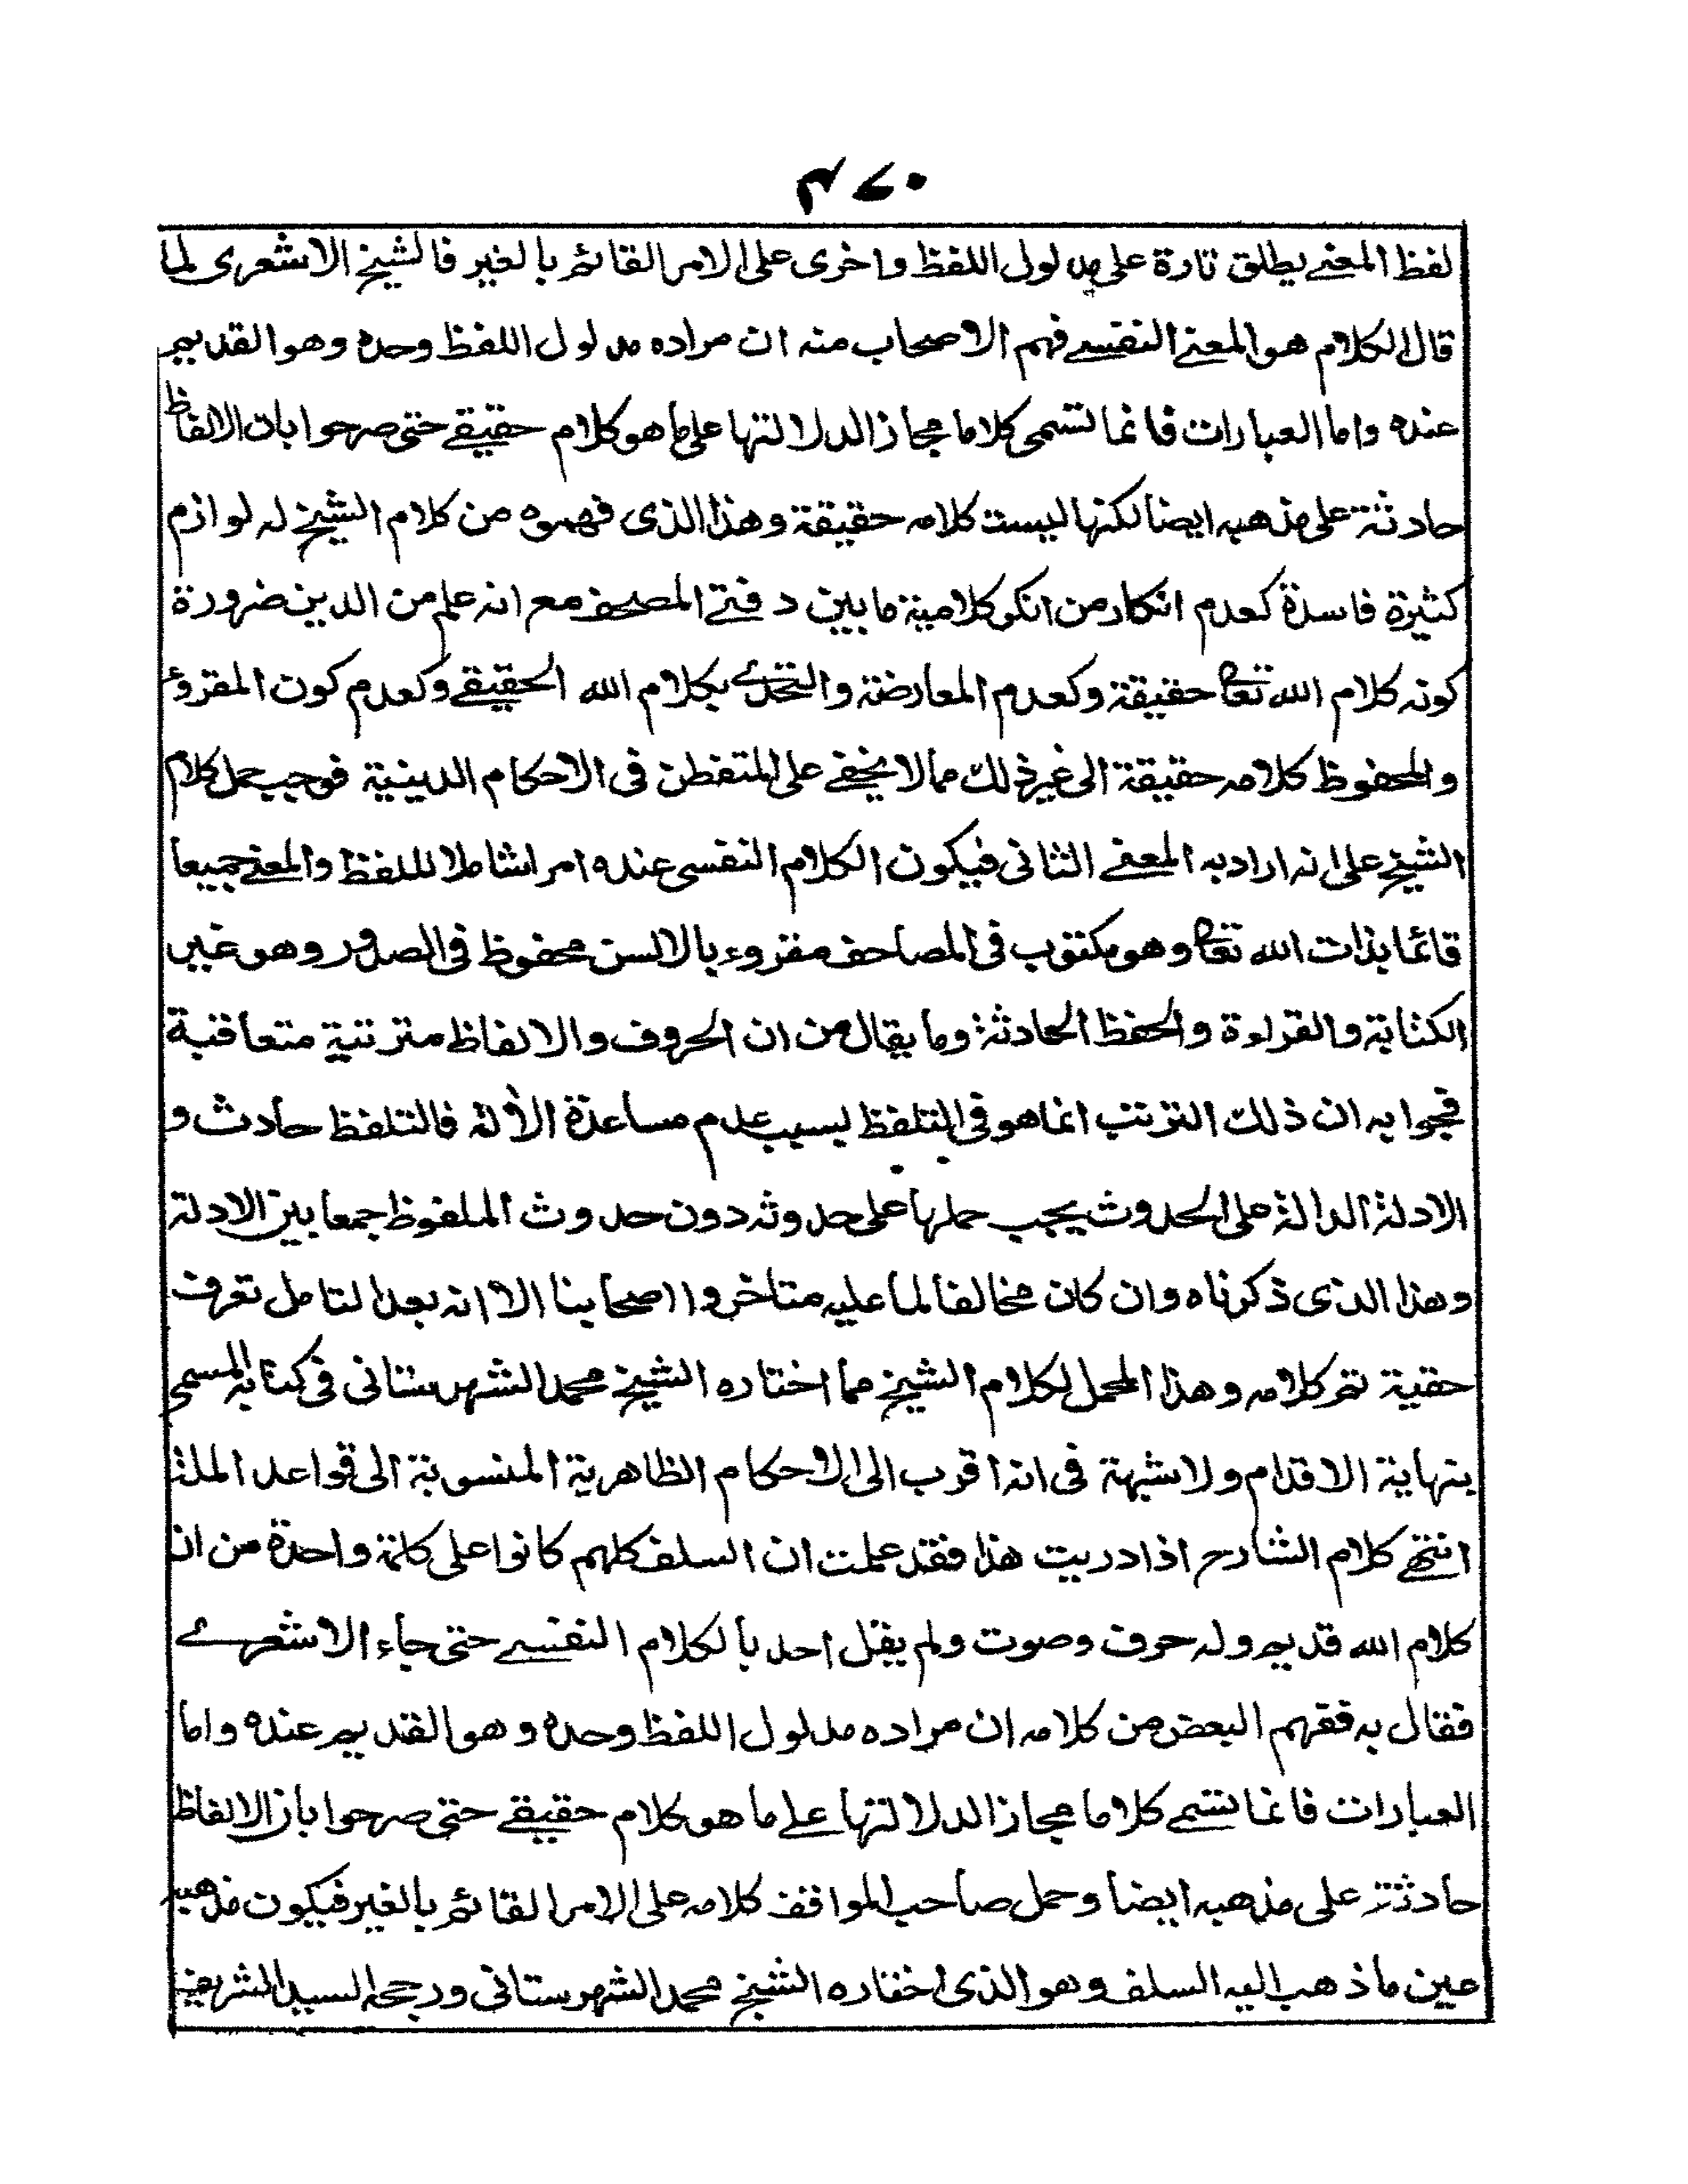 ۴۷۰
لفظ المعنے يطلق تارة على مدلول اللفظ واخرى على الامر القائم بالغير فالشيخ الاشعرى لما
قال الكلام هو المعنے النفسے فهم الاصحاب منه ان مراده مدلول اللفظ وحده وهو القديم
عنده واما العبارات فانما تسمى كلاما مجازا لدلالتها على ما هو كلام حقيقے حتى صرحوا بان الالفاظ
حادثة على مذهبه ايضا لكنها ليست كلامه حقيقة وهذا الذى فهموه من كلام الشيخ له لوازم
كثيرة فاسدة كعدم انكار من انكر كلامية ما بين دفتے المصحف مع انه علم من الدين ضرورة
كونه كلام الله تعا حقيقة وكعدم المعارضة والتحدے بكلام الله الحقيقے وكعدم كون المقروء
والمحفوظ كلامه حقيقة الى غير ذلك مما لا يخفے على المتفطن فى الاحكام الدينية فوجب حمل كلام
الشيخ على انه اراد به المعنے الثانى فيكون الكلام النفسى عنده امرا شاملا للفظ والمعنے جميعا
قائما بذات الله تعا وهو مكتوب فى المصاحف مقروء بالالسن محفوظ فى الصدور وهو غير
الكتابة والقراءة والحفظ الحادثة وما يقال من ان الحروف والالفاظ مترتبة متعاقبة
فجوابه ان ذلك الترتب انما هو فى التلفظ بسبب عدم مساعدة الألة فالتلفظ حادث و
الادلة الدالة على الحدوث يجب حملها على حدوثه دون حدوث الملفوظ جمعا بين الادلة
وهذا الذى ذكرناه وان كان مخالفا لما عليه متاخروا اصحابنا الا انه بعد التامل تعرف
حقية تم كلامه وهذا المحمل لكلام الشيخ مما اختاره الشيخ محمد الشهرستانى فى كتابه المسمى
بنهاية الاقدام ولا شبهة فى انه اقرب الى الاحكام الظاهرية المنسوبة الى قواعد الملة
انتهے كلام الشارح اذا دريت هذا فقد علمت ان السلف كلهم كانوا على كلمة واحدة من ان
كلام الله قديم وله حرف وصوت ولم يقل احد بالكلام النفسے حتى جاء الاشعرے
فقال به ففهم البعض من كلامه ان مراده مدلول اللفظ وحده وهو القديم عنده واما
العبارات فانما تسمے كلاما مجازا لدلالتها علے ما هو كلام حقيقے حتى صرحوا بان الالفاظ
حادثة على مذهبه ايضا وحمل صاحب المواقف كلامه على الامر القائم بالغير فيكون مذهبه
عين ما ذهب اليه السلف وهو الذى اختاره الشيخ محمد الشهرستانى ورجحه السيد الشريف